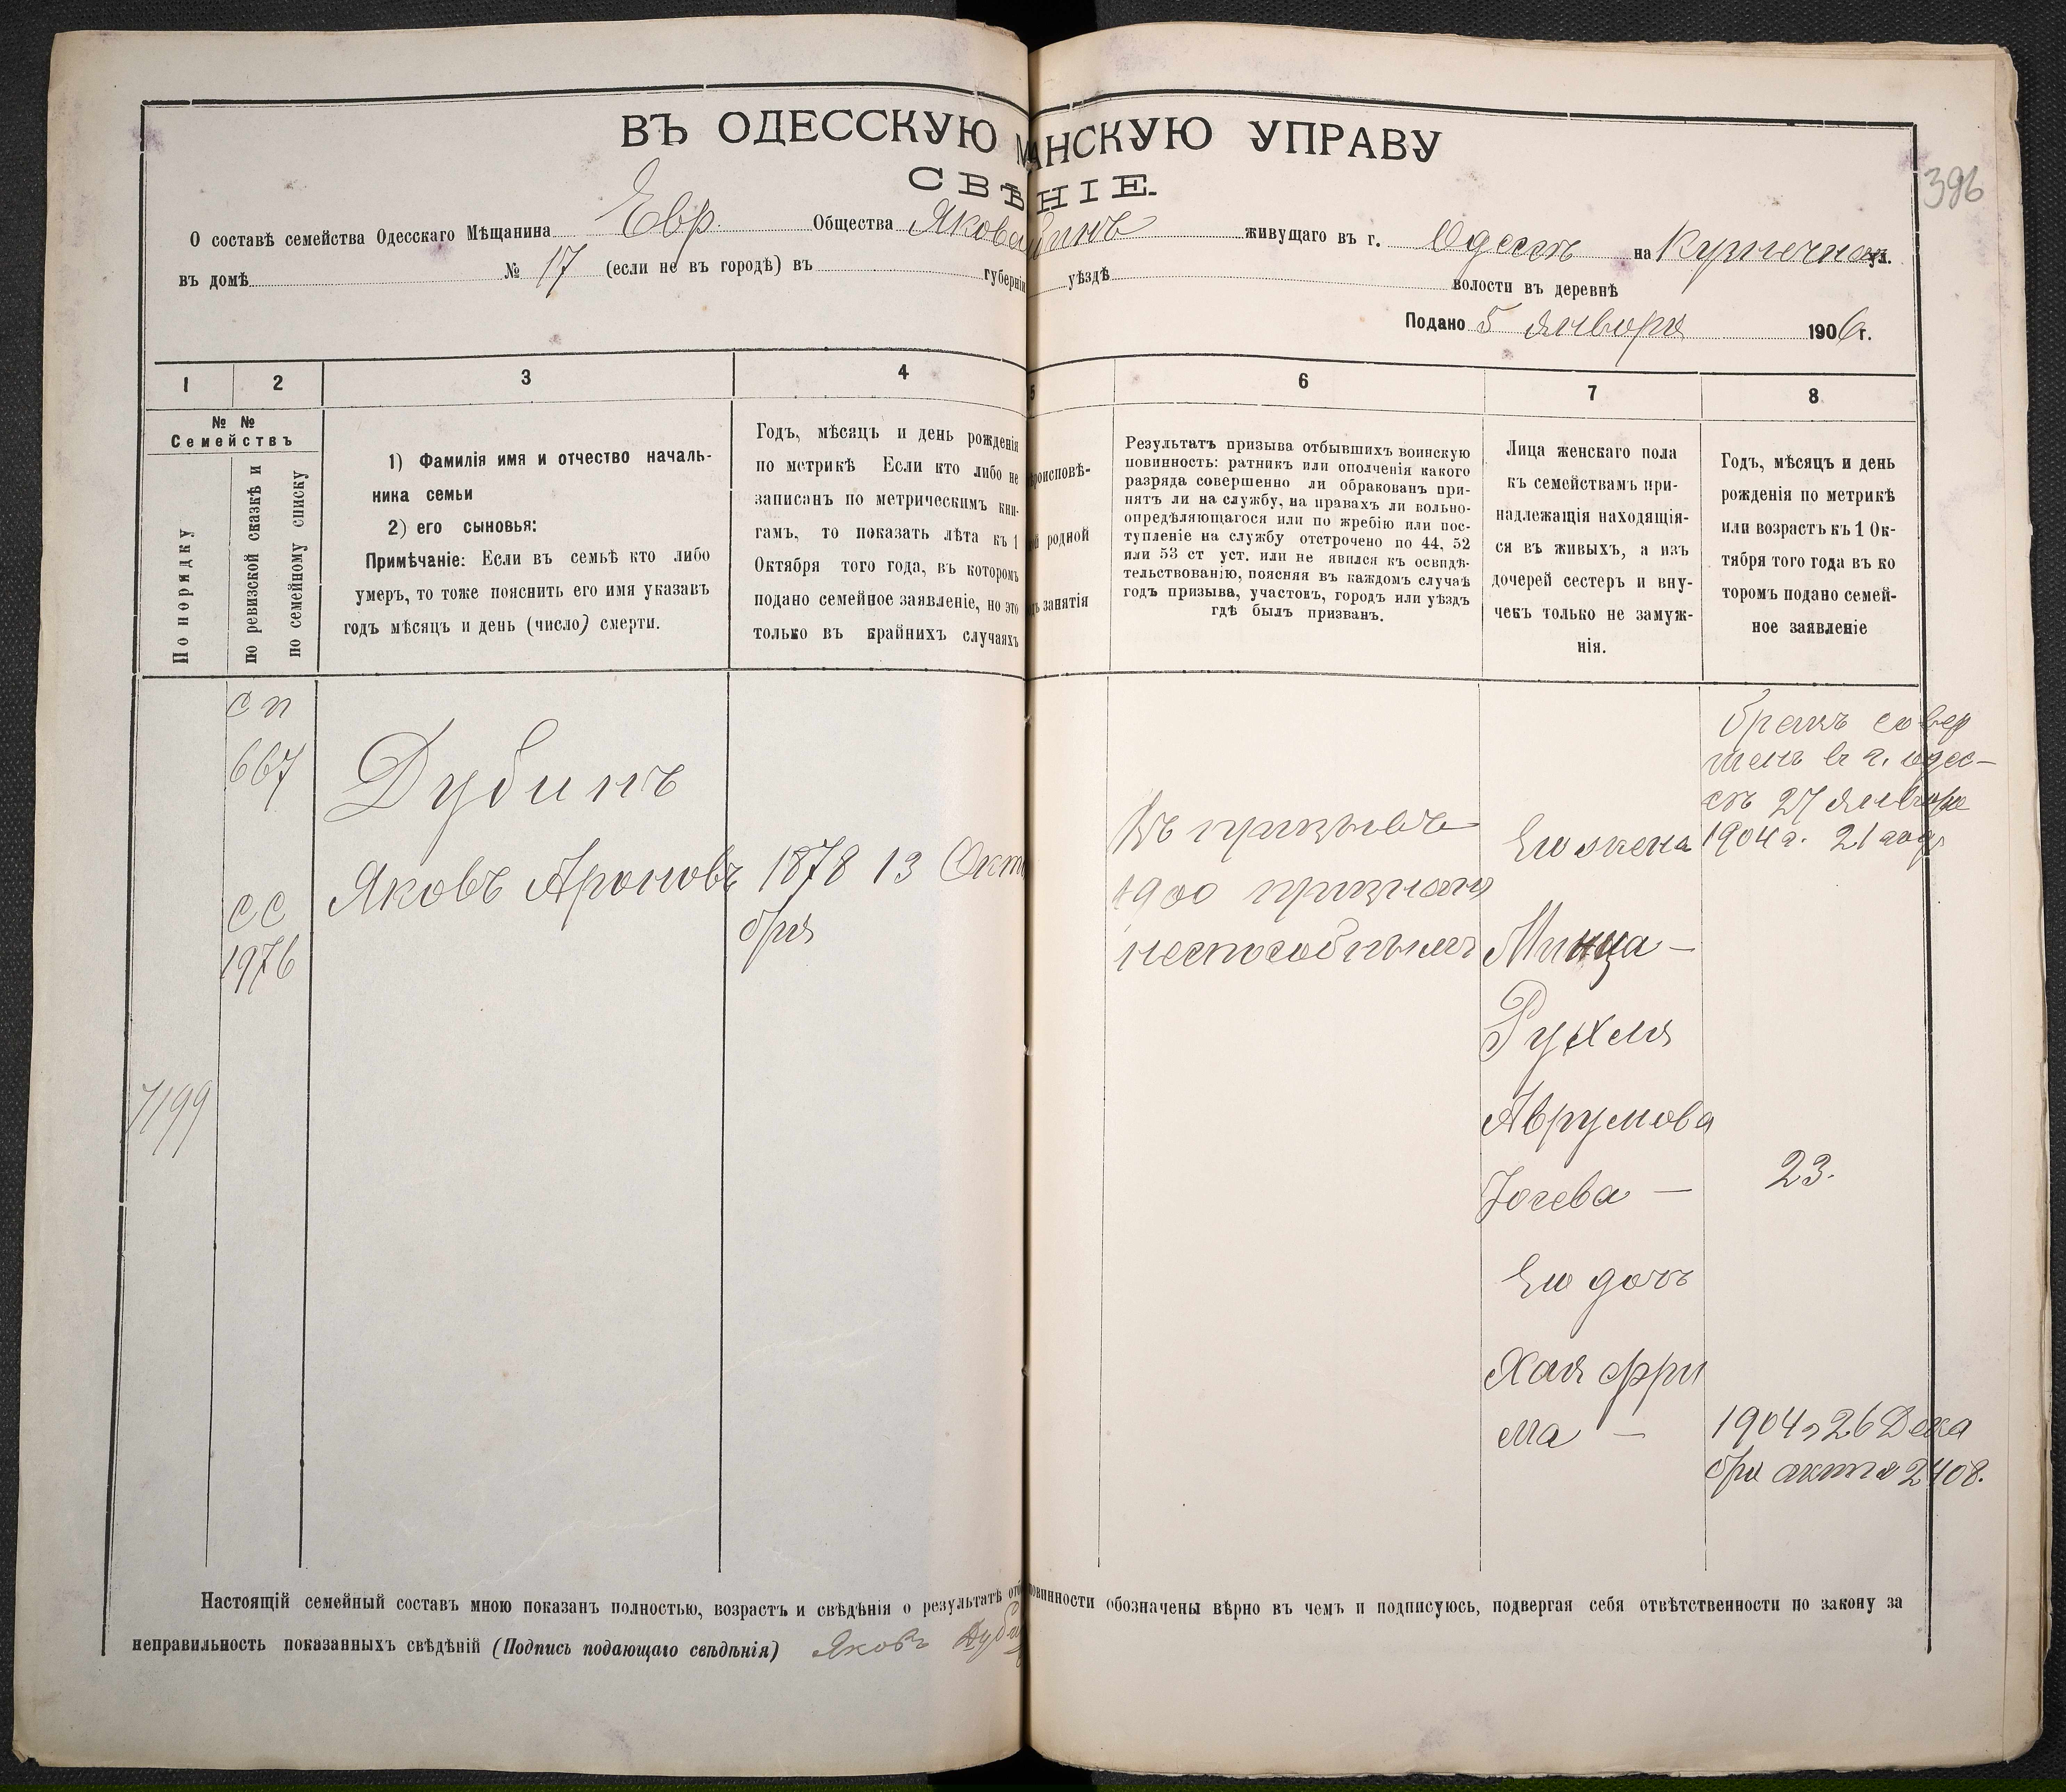 ВЪ ОДЕССКУЮ М АНСКУЮ УПРАВУ
СВѢ НІЕ.
396
О составѣ семейства Одесскаго Мѣщанина Евр. Общества Якова бинъ живущаго въ г. Одессѣ на ул.
въ домѣ № 17 (если не въ городѣ) въ губерніи уѣздѣ волости въ деревнѣ
Подано 5 января 1906 г.
1 2 3 4 5 6 7 8
№ №
Семействъ
По порядку
по ревизской сказкѣ и
по семейному списку
1) Фамилія имя и отчество началь-
ника семьи
2) его сыновья:
Примѣчаніе: Если въ семьѣ кто либо
умеръ, то тоже пояснить его имя указавъ
годъ мѣсяцъ и день (число) смерти.
Годъ, мѣсяцъ и день рожденія
по метрикѣ Если кто либо не
записанъ по метрическимъ кни-
гамъ, то показать лѣта къ 1
Октября того года, въ которомъ
подано семейное заявленіе, но это
только въ крайнихъ случаяхъ
роисповѣ-
й родной
ъ занятія
Результатъ призыва отбывшихъ воинскую
повинность: ратникъ или ополченія какого
разряда совершенно ли обракованъ при-
нятъ ли на службу, на правахъ ли вольно-
опредѣляющагося или по жребію или пос-
тупленіе на службу отстрочено по 44, 52
или 53 ст уст. или не явился къ освидѣ-
тельствованію, поясняя въ каждомъ случаѣ
годъ призыва, участокъ, городъ или уѣздъ
гдѣ былъ призванъ.
Лица женскаго пола
къ семействамъ при-
надлежащія находящія-
ся въ живыхъ, а изъ
дочерей сестеръ и вну-
чекъ только не замуж-
нія.
Годъ, мѣсяцъ и день
рожденія по метрикѣ
или возрастъ къ 1 Ок-
тября того года въ ко
торомъ подано семей-
ное заявленіе
7199
с п
667
с с
1976
Дубинъ
Яковъ Ароновъ
1878 13 Октя
бря
Въ призывѣ
1900 признанъ
неспособнымъ
Его жена
Минца —
Рухля
Аврумова
Іосева —
Его дочь
Хая Фри
ма —
бракъ совер
шенъ въ г. Одес-
сѣ 27 января
1904 г. 21 году
23.
1904 г 26 Дека
бря актъ 2408.
Настоящій семейный составъ мною показанъ полностью, возрастъ и свѣдѣнія о результатѣ отб повинности обозначены вѣрно въ чемъ и подписуюсь, подвергая себя отвѣтственности по закону за
неправильность показанныхъ свѣдѣній (Подпись подающаго свѣдѣнія) Яковъ Дуби